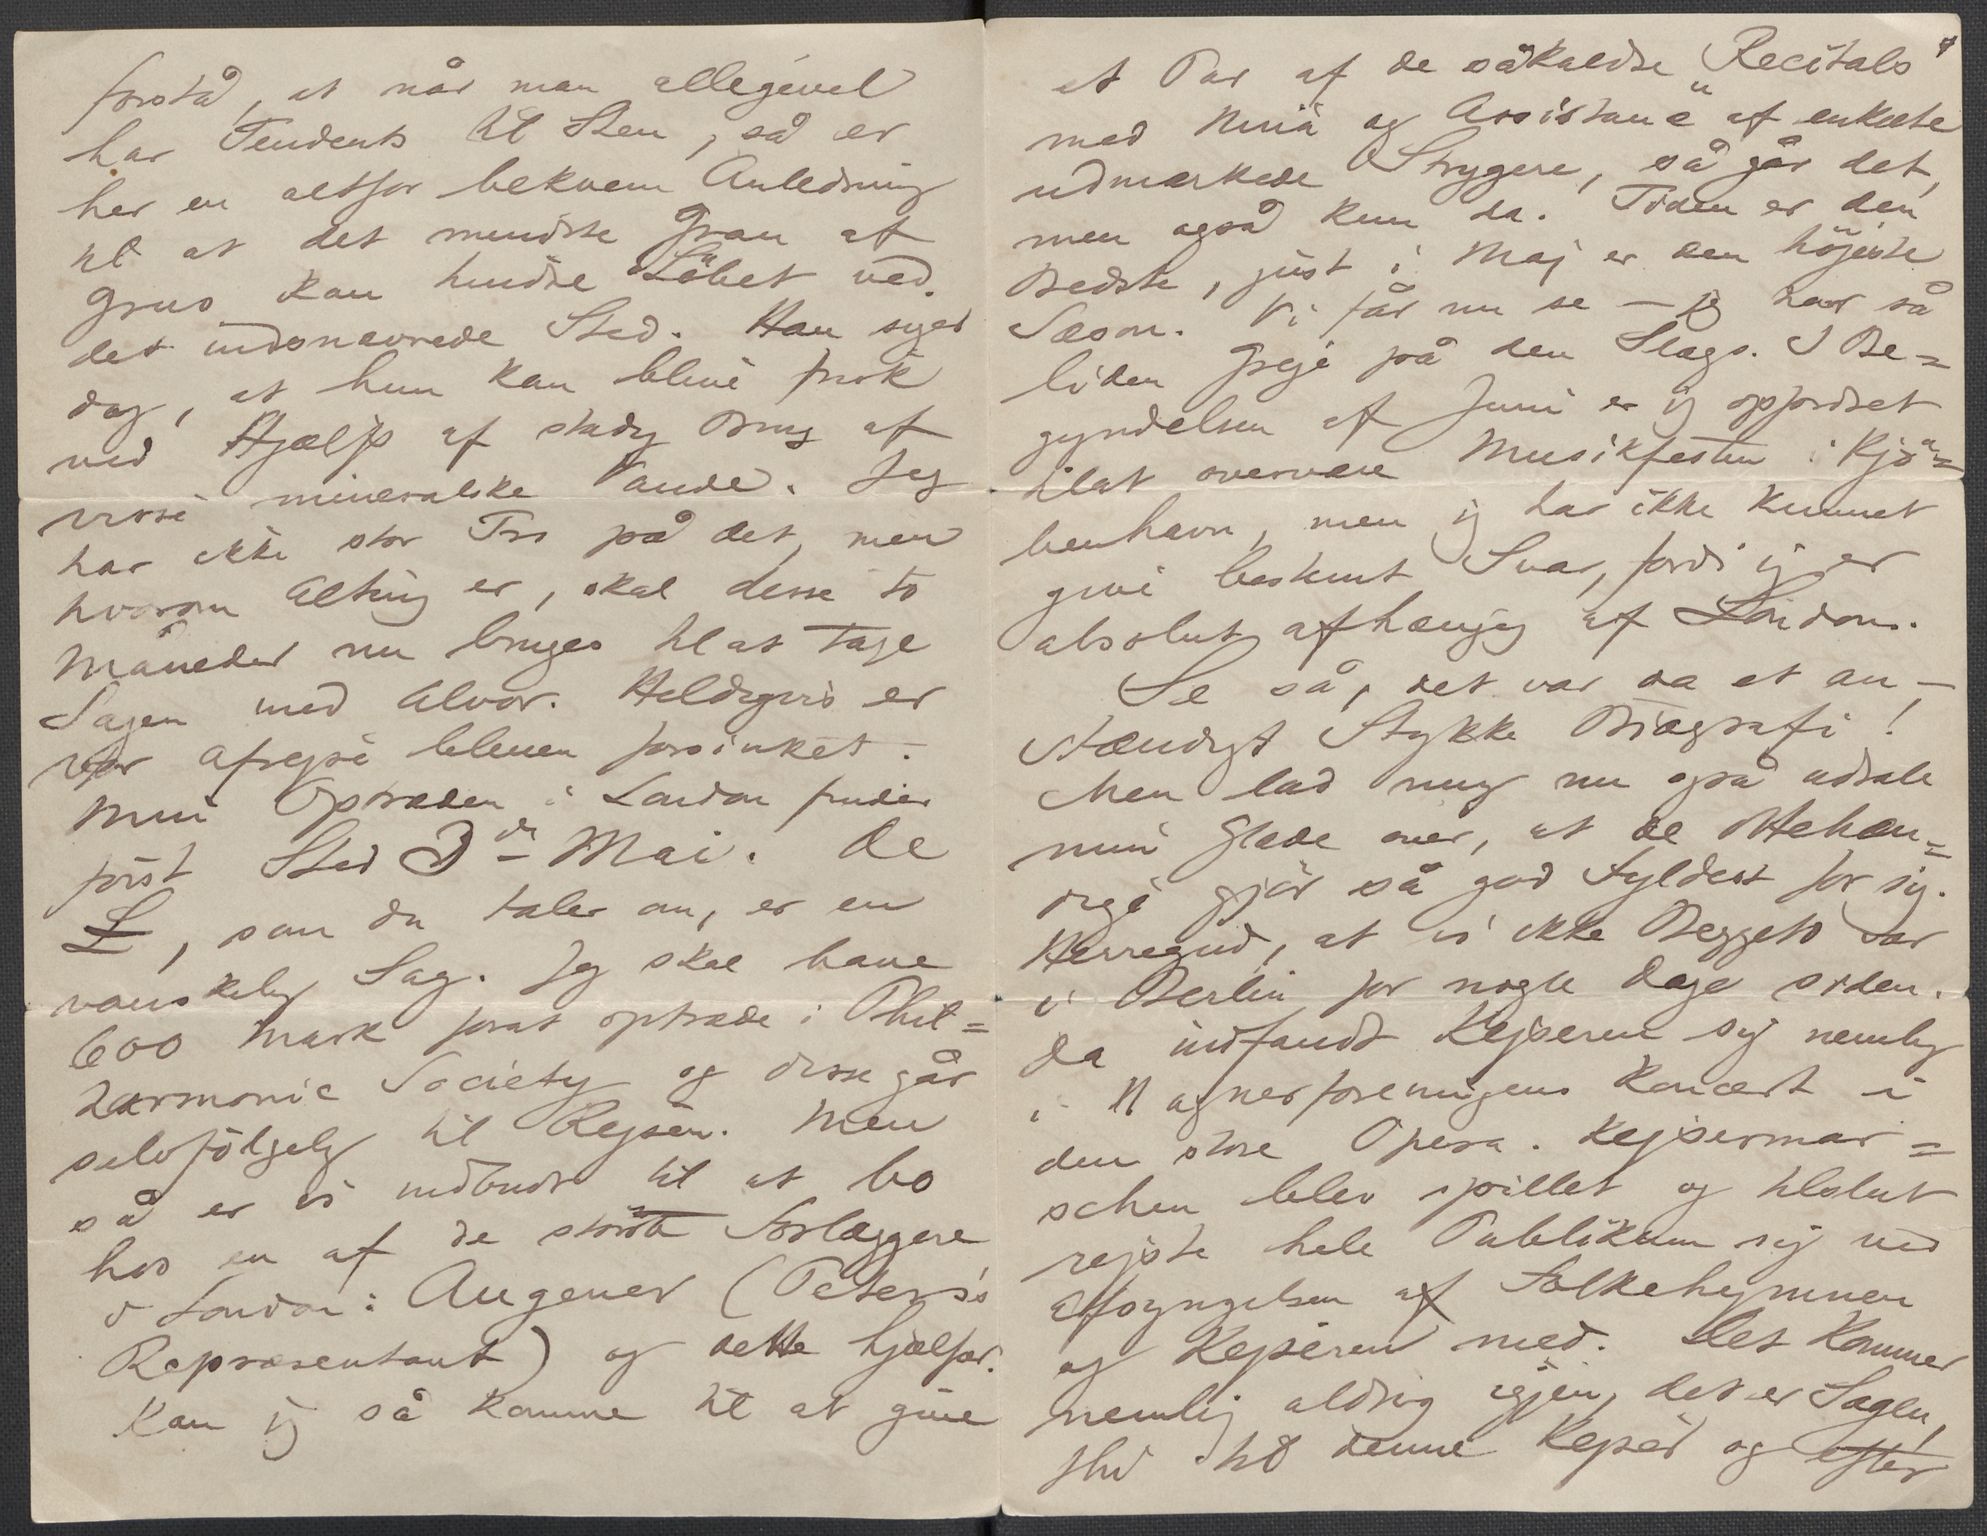 forstå, at når man allegivel
har Tendents til Sten, så er
her en altfor bekvem Anledning
til at det mindste Gran af
Grus kan hindre Löbet ved
det indsnevrede Sted. Han siger
dog, at hun kan blive frisk
ved Hjælp af stadig Brug af
visse mineralske Vande. Jeg
har ikke stor Tro på det, men
hvorom Alting er, skal disse to
Måneder nu bruges til at tage
Sagen med Alvor. Heldigvis er
vor Afrejse bleven forsinket.
Min Optræden i London finder
först Sted 3die Mai. De
£, som du taler om, er en
vanskelig Sag. Jeg skal have
600 Mark forat optræde i Phil=
harmonic Society og disse går
selvfölgelig til Rejsen. Men
så er vi indbudt til at bo
hos en af de störste Forlæggere
i London: Augener (Peters's
Repræsentant) og dette hjælper.
Kan jeg så komme til at give
et Par af de såkaldte "Recitals"
med Nina og Assistance af enkelte
udmærkede Strygere, så går det,
men også kun da. Tiden er den
Bedste, just i Maj er den höjeste
Sæson. Vi får nu se – jeg har så
liden Greje på den Slags. I Be=
gyndelsen af Juni er jeg opfordret
tilat overvære Musikfesten i Kjö=
benhavn, men jeg har ikke kunnet
give bestemt Svar, fordi jeg er
absolut afhængig af London.
Se så, det var da et an–
stændigt Stykke Biografi!
Men lad mig nu også udtale
min Glæde over, at de
gjör så god Fyldest for sig.
Herregud, at vi ikke Beggeto var
i Berlin for nogle Dage siden.
Da indfandt Kejseren sig nemlig
i Wagnerforeningens Koncert i
den store Opera. Kejsermar=
schen blev spillet og tilslut
rejste hele Publikum sig ved
Afsyngelsen af Folkehymnen
og Kejseren med. Det kommer
nemlig aldrig igjen, det er Sagen,
thi til denne Kejser og efter